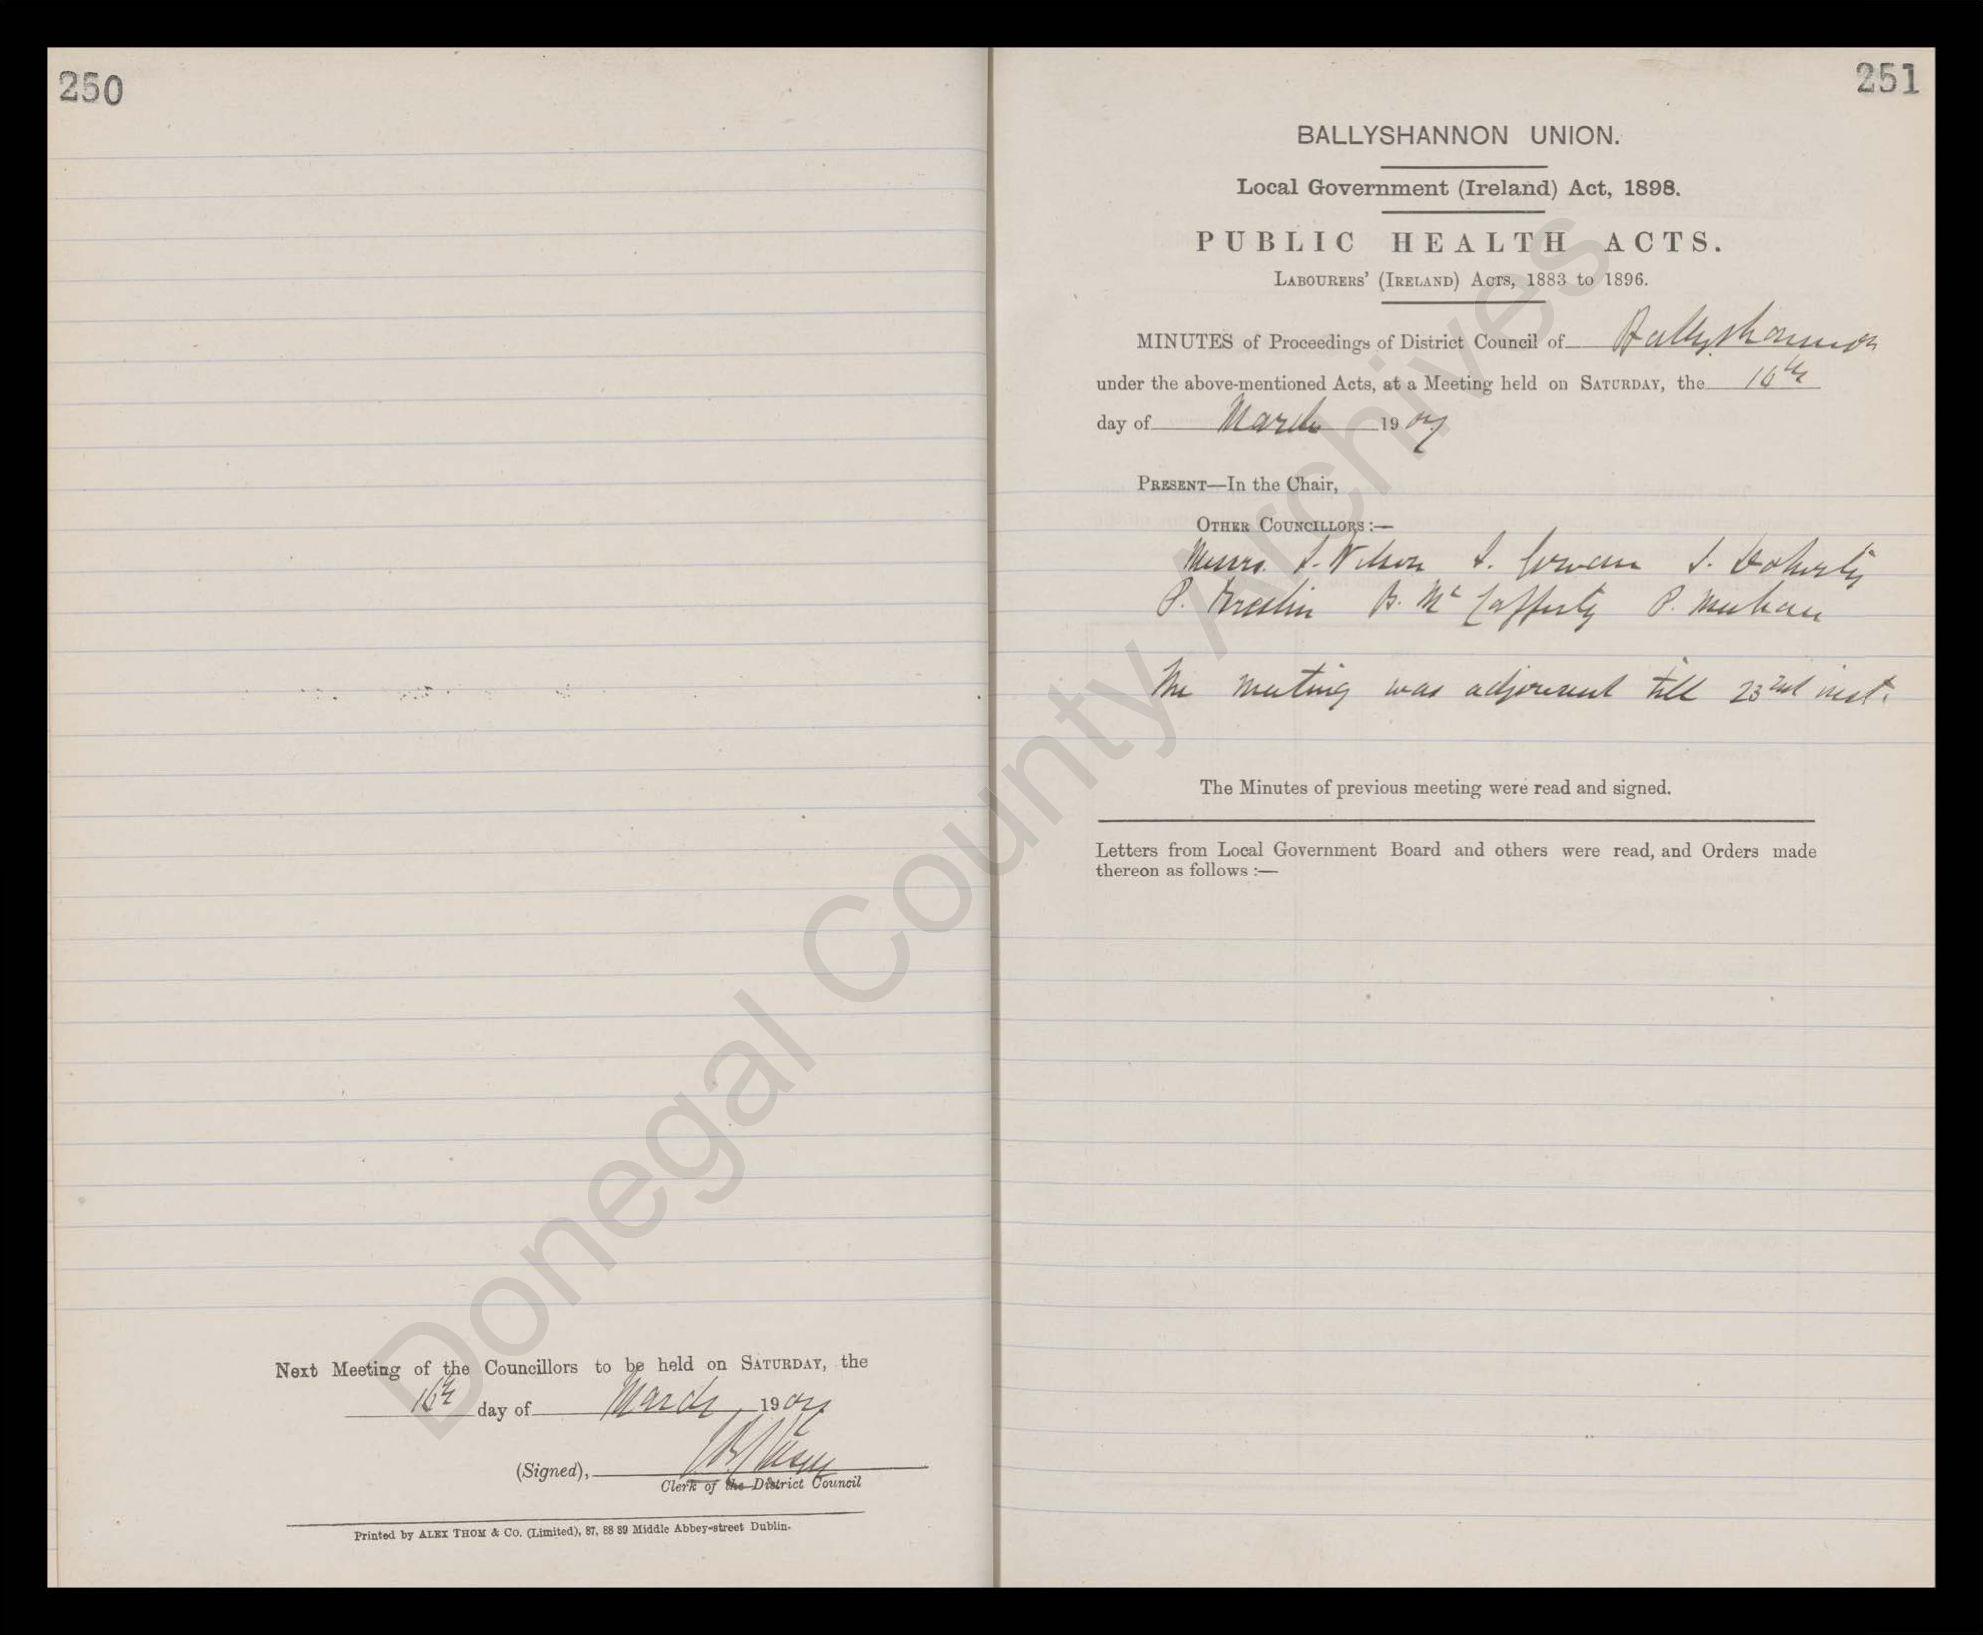 250
Next Meeting of the Councillors to be held on SATURDAY, the
16th day of March 1907
(Signed),
Clerk of the District Council
Printed by ALEX THOM & Co. (Limited), 87, 88 89 Middle Abbey-street Dublin.
251
BALLYSHANNON UNION.
Local Government (Ireland) Act, 1898.
PUBLIC HEALTH ACTS.
LABOURERS' (IRELAND) ACTS, 1883 to 1896.
MINUTES of Proceedings of District Council of Ballyshannon
under the above-mentioned Acts, at a Meeting held on SATURDAY, the 16th
day of March 1907
PRESENT—In the Chair,
OTHER COUNCILLORS:—
Messrs. Wilson Doherty
P. Breslin B. McCafferty P. Meehan
The meeting was adjourned till 23rd inst.
The Minutes of previous meeting were read and signed.
Letters from Local Government Board and others were read, and Orders made
thereon as follows :—
Donegal County Archives